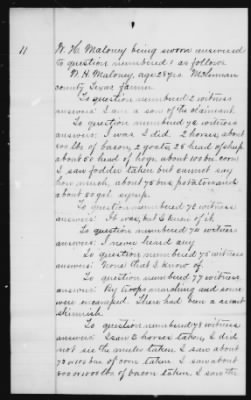 11
W. H. Maloney being sworn answered
to question numbered 1 as follows
W. H. Maloney, age 28 yrs. McLennan
county Texas farmer
To question numbered 2 witness
answers: I am a son of the claimant.
To question numbered 72 witness
answers: I was I did. 2 horses, about
lbs of bacon, 2 goats, 28 head of sheep
about 50 head of hogs about 100 bu. corn
I saw fodder taken but cannot say
how much, about 75 bus potatoes and
about 50 gal syrup.
To question numbered 73 witness
answers: It was, but I know of it
To question numbered 74 witness
answers: I never heard any
To question numbered 75 witness
answers: None that I know of.
To question numbered 77 witness
answers: By troops marching and some
were encamped. There had been a
skirmish.
To question numbered 78 witness
answers: I saw 2 horses taken, I did
not see the mules taken I saw about
bus of corn taken I saw about
lbs of bacon taken. I saw the